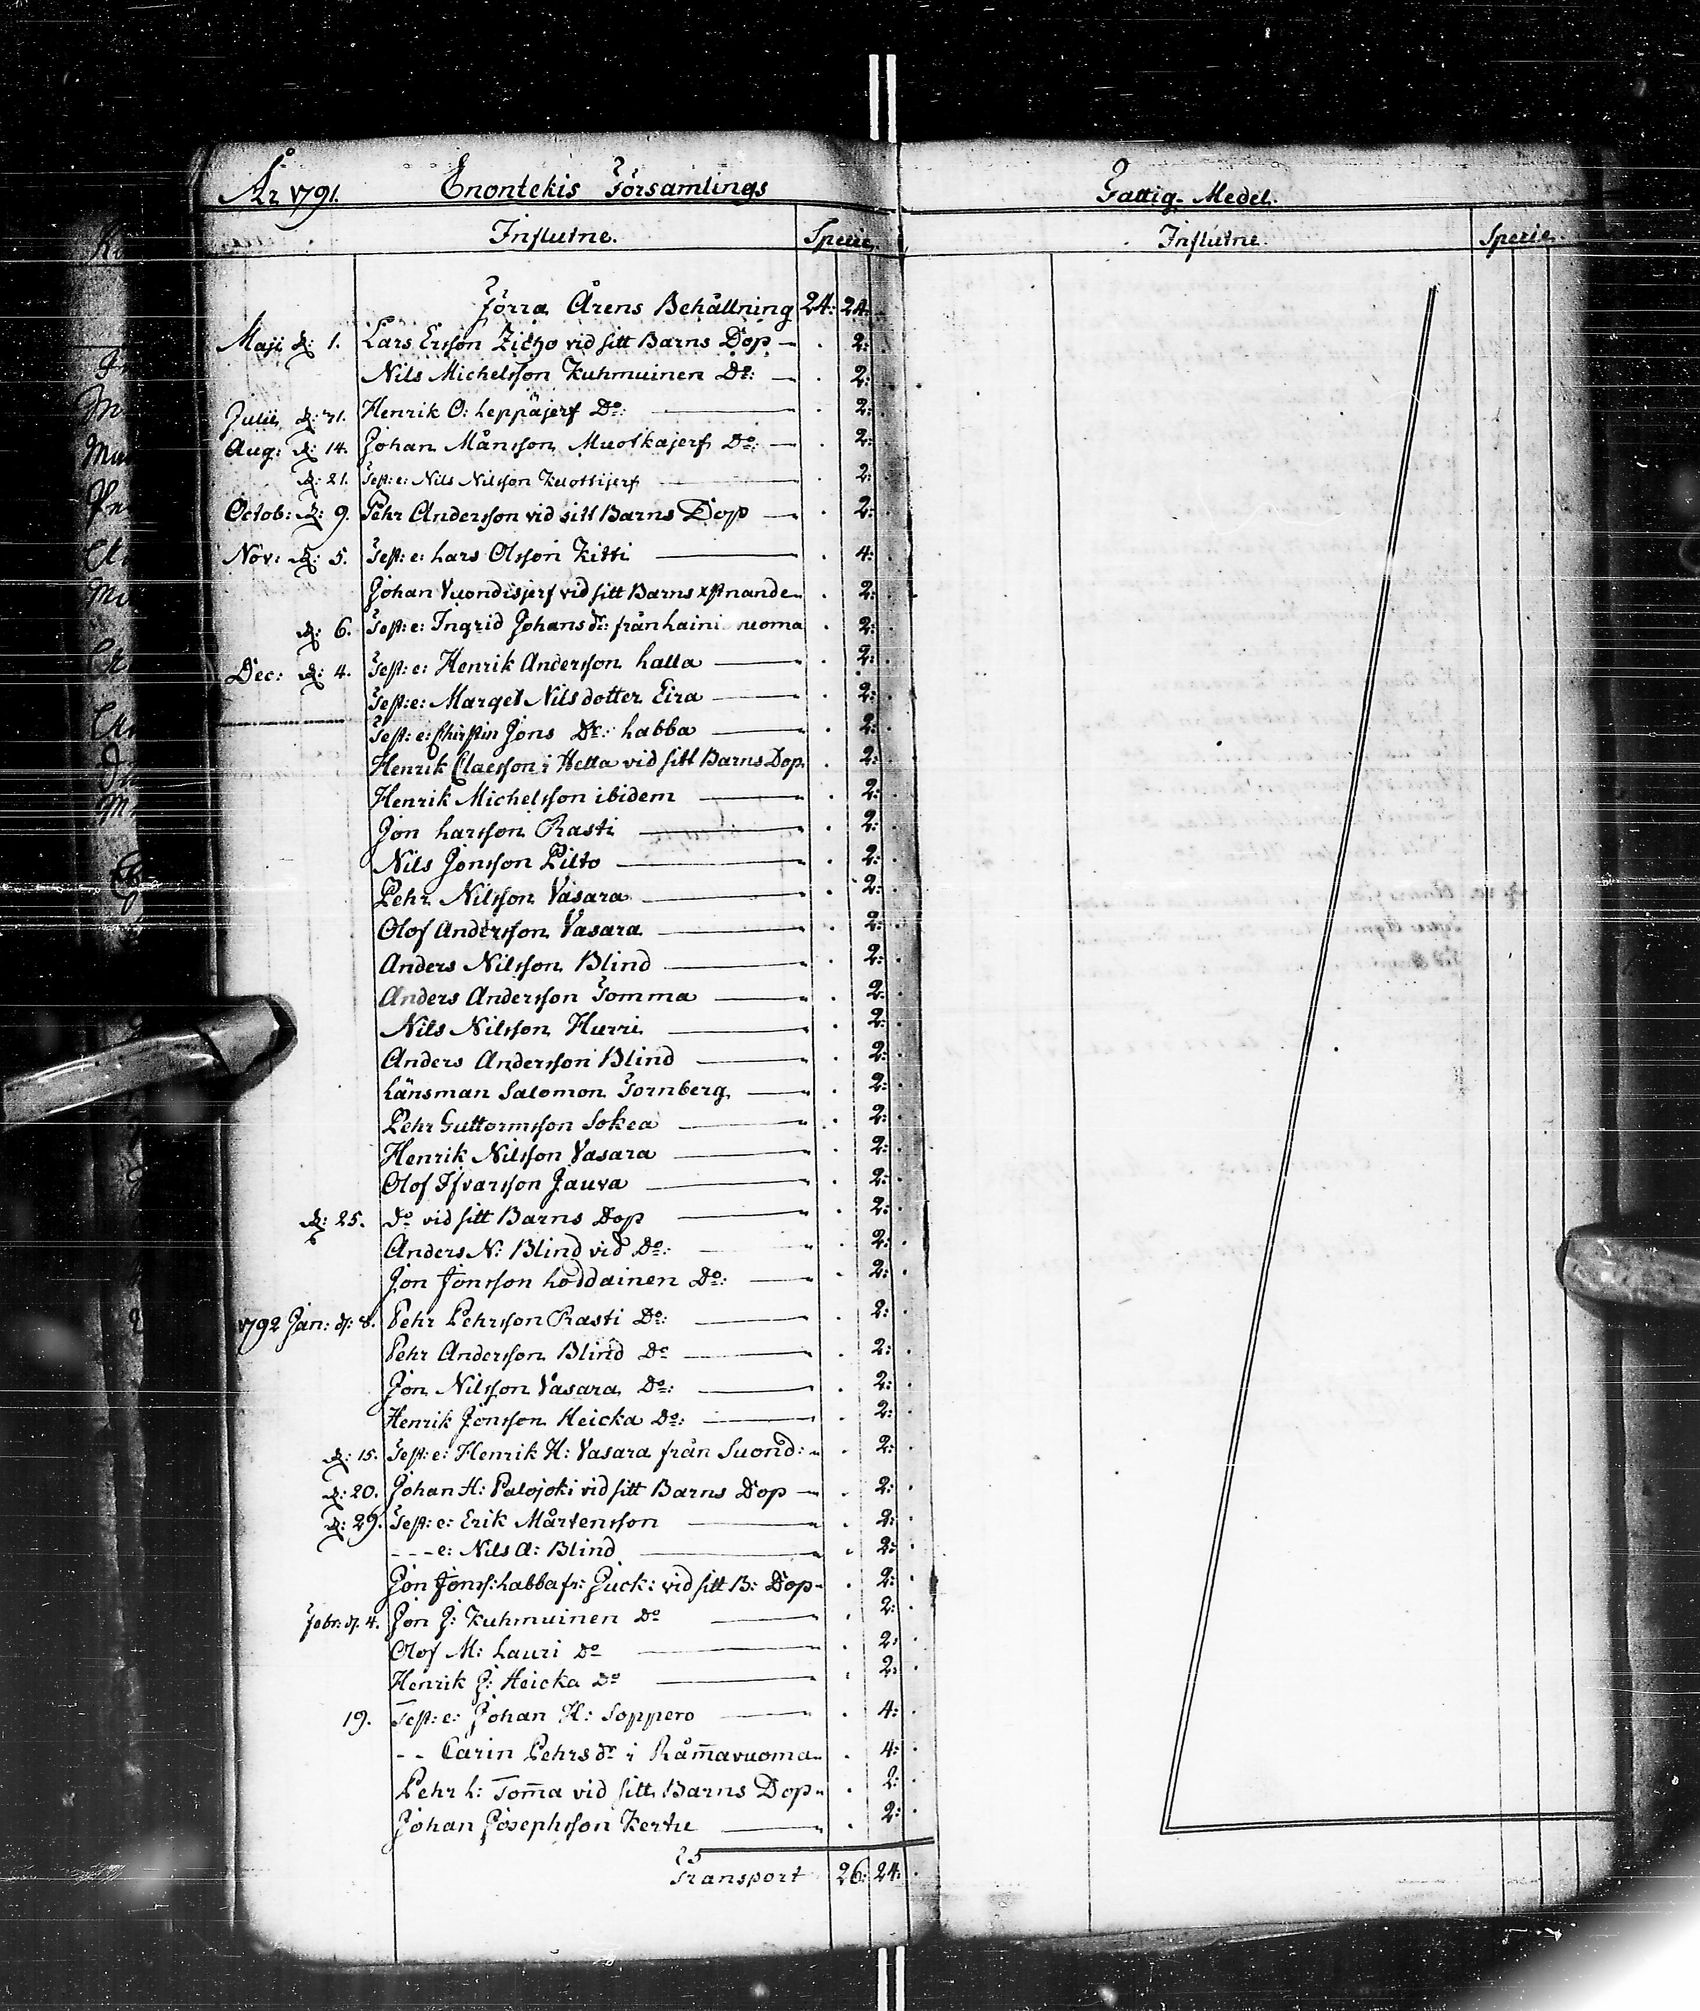 År 1791. Enontekis Församlings
Influtne. Specie
Förra Årens Behållning 24: 24:
Maji d: 1. Lars Ersson Zitzo vid sitt Barns Dop 2:
Nils Michelsson Kuhmuinen Do: 2:
Julii d: 31. Henrik O: Leppäjerf Do: 2:
Aug: d: 14. Johan Månsson Muotkajerf Do: 2:
d: 21. Test: e: Nils Nilsson Kuottijerf 2:
Octob: d: 9. Pehr Andersson vid sitt Barns Dop 2:
Nov: d: 5. Test: e: Lars Olsson Kitti 4:
Johan Vuondisjerf vid sitt Barns xstnande 2:
d: 6. Test: e: Ingrid Johans dr: från Laini uoma 2:
Dec: d: 4. Test: e: Henrik Andersson Lalla 2:
Test: e: Marget Nilsdotter Eira 2:
Test: e: Chirstin Jons Dr: Labba 2:
Henrik Claesson i Hetta vid sitt Barns Dop 2:
Henrik Michelsson ibidem 2:
Jon Larsson Rasti 2:
Nils Jonsson Pilto 2:
Pehr Nilsson Vasara 2:
Olof Andersson Vasara 2:
Anders Nilsson Blind 2:
Anders Andersson Tomma 2:
Nils Nilsson Hurri 2:
Anders Andersson Blind 2:
Länsman Salomon Tornberg 2:
Pehr Guttormsson Sokea 2:
Henrik Nilsson Vasara 2:
Olof Ifvarsson Jauva 2:
d: 25. Do vid sitt Barns Dop 2:
Anders N: Blind vid Do: 2:
Jon Jonsson Loddainen Do: 2:
1792 Jan: d: 8. Pehr Pehrsson Rasti Do: 2:
Pehr Andersson Blind Do 2:
Jon Nilsson Vasara Do: 2:
Henrik Jonsson Heicka Do: 2:
d: 15. Test: e: Henrik H: Vasara från Suond: 2:
d: 20. Johan H: Palojoki vid sitt Barns Dop 2:
d: 29. Test: e: Erik Mårtensson 2:
- - - e: Nils A: Blind 2:
Jon Jonss: Labba fr: Juck: vid sitt B: Dop 2:
Febr: d. 4. Jon J: Kuhmuinen Do 2:
Olof M: Lauri Do 2:
Henrik J: Heicka Do 2:
19. Test: e: Johan H: Soppero 4:
- - Carin Pehrs dr i Råm̄avuoma 4:
Pehr L: Tom̄a vid sitt Barns Dop 2:
Johan Josephsson Kertu 2:
Transport 26: 24:
Fattig-Medel.
Influtne. Specie